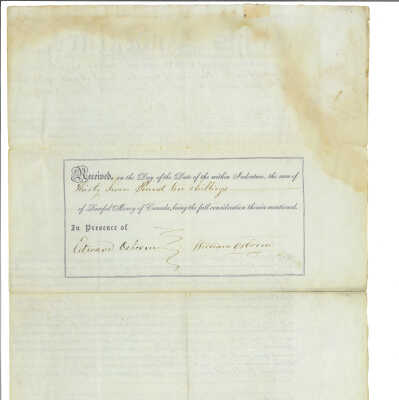 Received, on the Day of the Date of the within Indenture, the sum of
Thirty Seven Pound ten shillings
of Lawful Money of Canada, being the full consideration therein mentioned.
In Presence of
Edward Osborn William Osborn